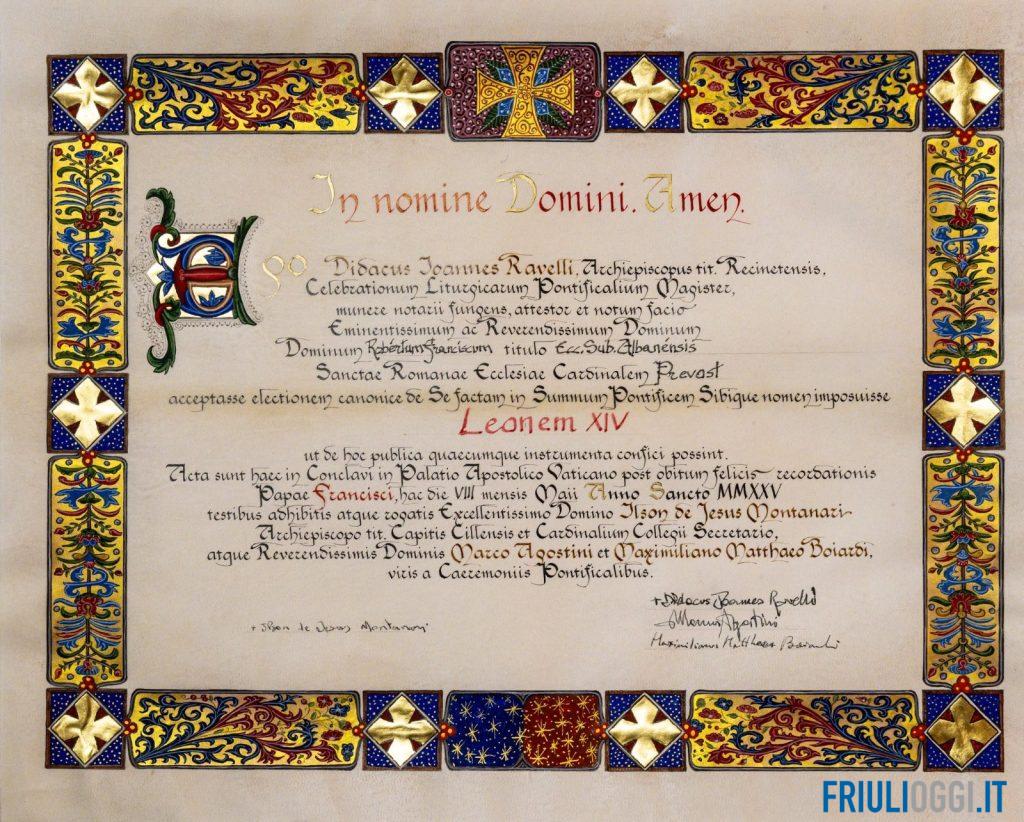 In nomine Domini. Amen.
Ego Didacus Joannes Ravelli, Archiepiscopus tit. Recinetensis,
Celebrationum Liturgicarum Pontificalium Magister,
munere notarii fungens, attestor et notum facio
Eminentissimum ac Reverendissimum Dominum
Dominum Robertum Franciscum titulo Ecc. Sub. Albanensis
Sanctae Romanae Ecclesiae Cardinalem Prevost
acceptasse electionem canonice de Se factam in Summum Pontificem Sibique nomen imposuisse
Leonem XIV
ut de hoc publica quaecumque instrumenta confici possint.
Acta sunt haec in Conclavi in Palatio Apostolico Vaticano post obitum felicis recordationis
Papae Francisci, hac die VIII mensis Maii Anno Sancto MMXXV
testibus adhibitis atque rogatis Excellentissimo Domino Ilson de Jesus Montanari
Archiepiscopo tit. Capitis Cillensis et Cardinalium Collegii Secretario,
atque Reverendissimis Dominis Marco Agostini et Maximiliano Matthaeo Boiardi,
viris a Caeremoniis Pontificalibus.
+ Didacus Joannes Ravelli
Marcus Agostini
+ Ilson de Jesus Montanari
Maximilianus Matthaeus Boiardi
FRIULIOGGI.IT